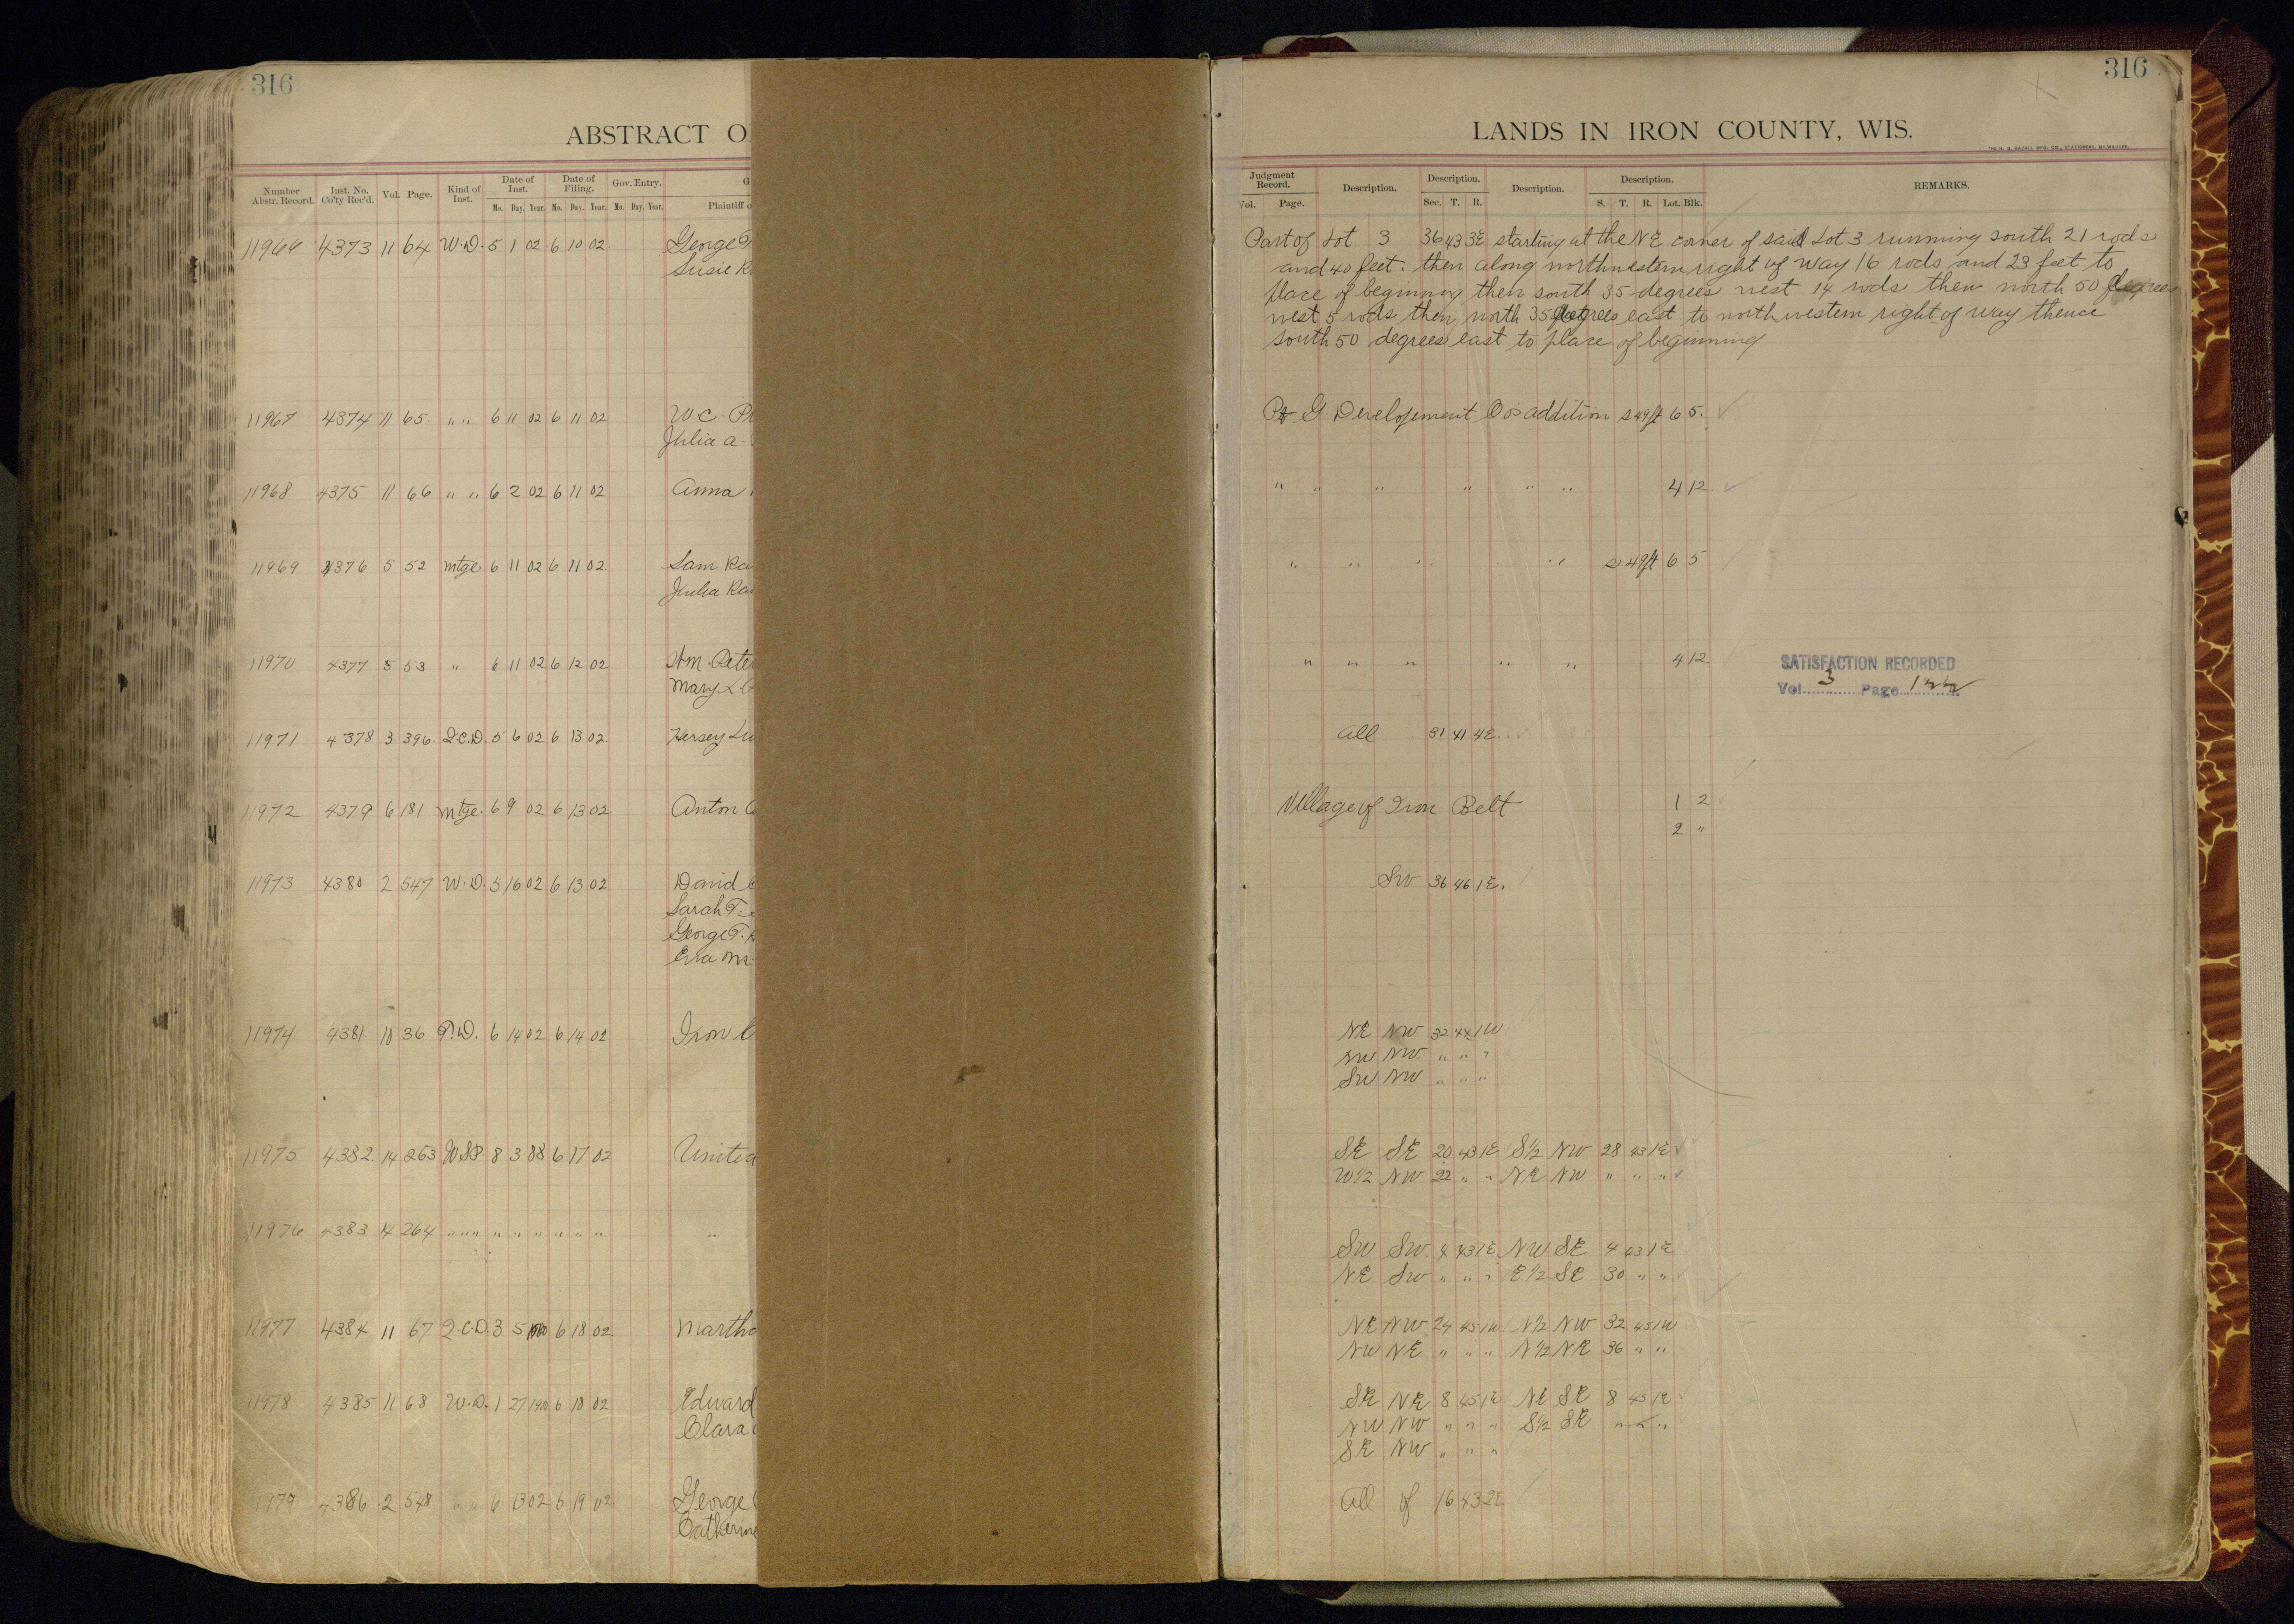 316
ABSTRACT O
Number Abstr. Record. Inst. No. Co'ty Rec'd. Vol. Page. Kind of Inst. Date of Inst. Date of Filing. Gov. Entry. G
Mo. Day. Year. Mo. Day. Year. Mo. Day. Year. Plaintiff o
4373 11 64 W.D. 5 1 02 6 10 02 George
Susie
11967 4374 11 65. " " 6 11 02 6 11 02 W C. P
Julia A.
11968 4375 11 66 " " 6 2 02 6 11 02 Anna
11969 4376 5 52 mtge 6 11 02 6 11 02 Sam Ra
Julia Ra
11970 4377 5 53 " 6 11 02 6 12 02 Wm. Pete
Mary
11971 4378 3 396. Q.C.D. 5 6 02 6 13 02. Hersey Lu
11972 4379 6 181 mtge. 6 9 02 6 13 02 Anton
11973 4380 2 547 W.D. 5 16 02 6 13 02 David
Sarah T.
George T.
11974 4381. 10 36 T.D. 6 14 02 6 14 02 Iron
11975 4382. 14 263 8 3 88 6 17 02 United
11976 4383 14 264 " " " " " " " " "
11977 4384 11 67 Q.C.D. 3 5 6 18 02 Martha
11978 4385 11 68 W.D. 1 27 6 18 02 Edward
Clara
11979 4386 2 548 " " 6 13 02 6 19 02 George
Catherine
316
LANDS IN IRON COUNTY, WIS.
Judgment Record. Description. Description. Description. Description. REMARKS.
Vol. Page. Sec. T. R. S. T. R. Lot. Blk.
Part of Lot 3 36 43 3E starting at the NE corner of said Lot 3 running south 21 rods
and 40 feet. then along northwestern right of way 16 rods and 23 feet to
place of beginning then south 35 degrees west 14 rods then north 50 degrees
west 5 rods then north 35 degrees east to northwestern right of way thence
south 50 degrees east to place of beginning
G Developement Co's addition 49ft 6 5.
" " " " " " 4 12.
" " " " " 49ft 6 5
" " " " " 4 12
SATISFACTION RECORDED
Vol. 3 Page
All 31 41 4E.
Village of Iron Belt 1 2
2 "
SW 36 46 1E.
NE NW 32 44 1W
NW NW " " "
SW NW " " "
SE SE 20 43 1E S½ NW 28 43 1E
W½ NW 22 " " NE NW " " "
SW SW 4 43 1E NW SE 4 43 1E
NE SW " " " E½ SE 30 " "
NE NW 24 45 1W N½ NW 32 45 1W
NW NE " " " N½ NE 36 " "
SE NE 8 45 1E NE SE 8 45 1E
NW NW " " " S½ SE " " "
SE NW " " "
All of 16 43 2E